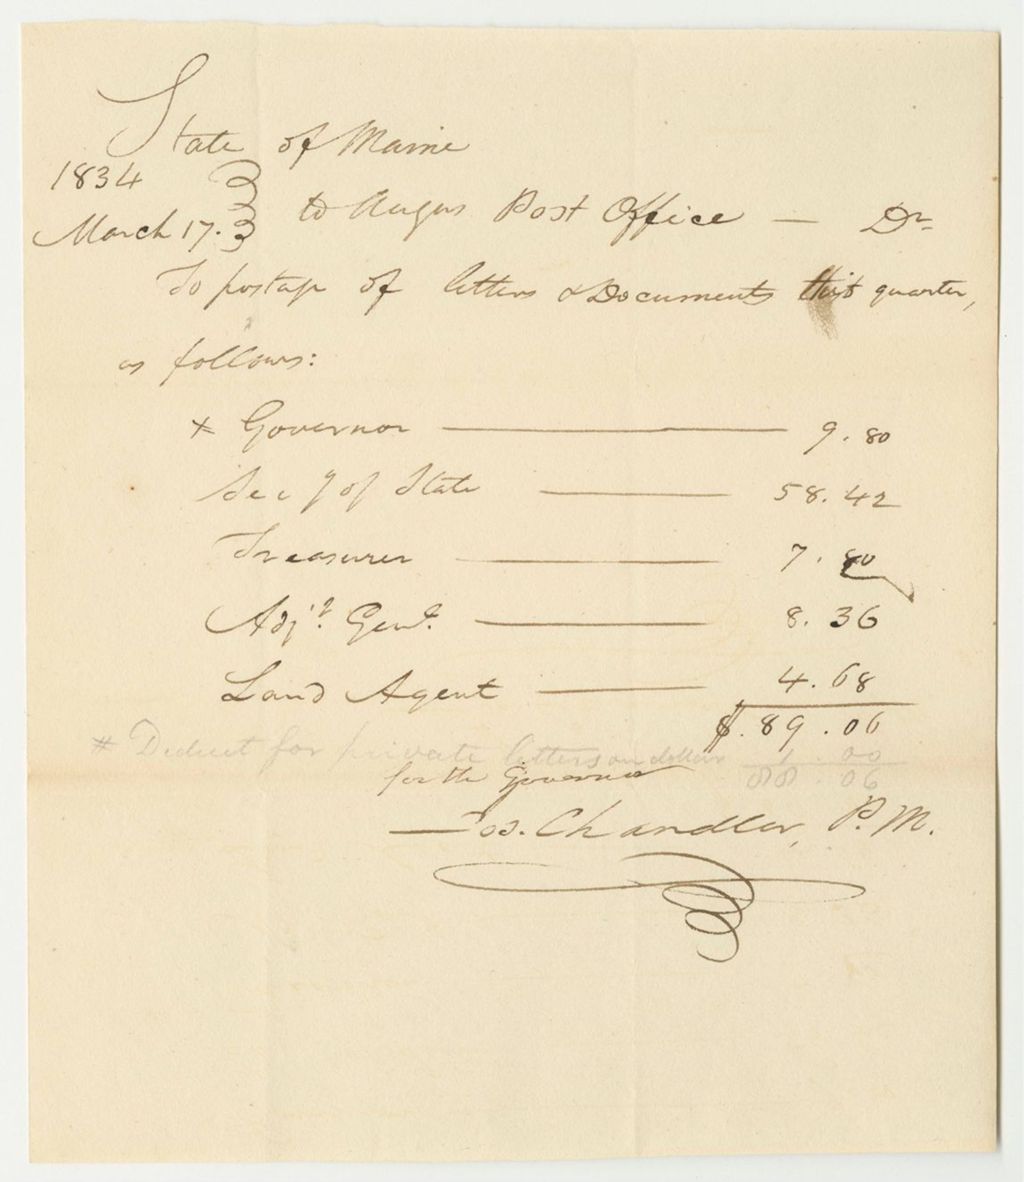 State of Maine
1834
March 17. to Augus Post Office — Dr
To postage of letters & Documents this quarter,
as follows:
x Governor — 9.80
Secy of State — 58.42
Treasurer — 7.80
Adjt. Genl. — 8.36
Land Agent — 4.68
$.89.06
# Deduct for private letters one dollar 1.00
for the Governor 88.06
— Jos. Chandler, P.M.